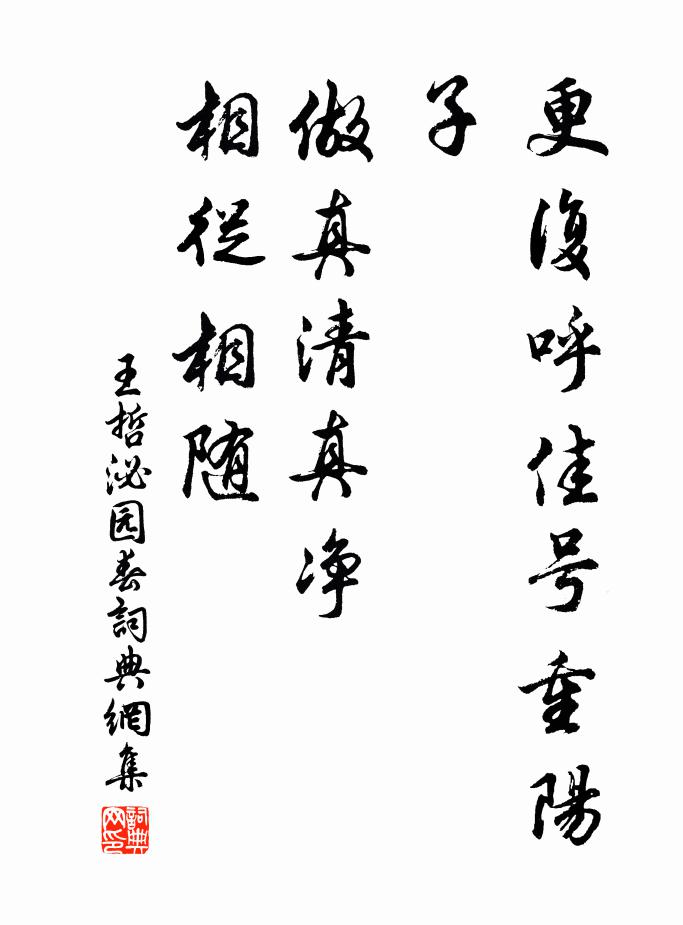 更復呼佳号重陽
子
做真清真净
相從相随
王哲泌园春詞典網集
詞典
网印